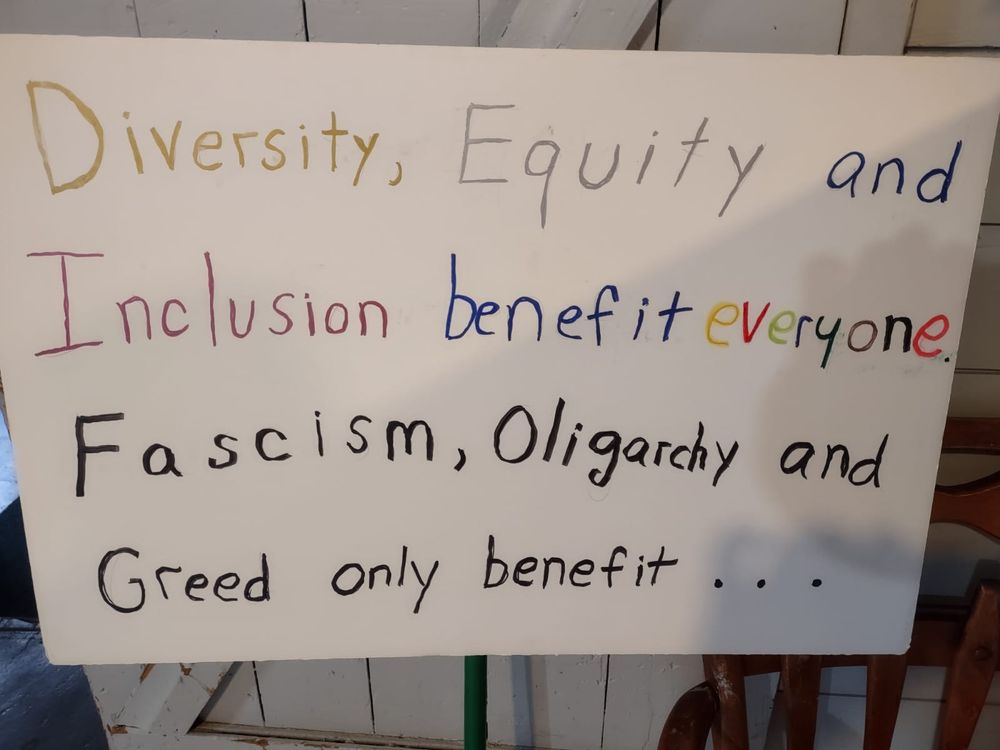 Diversity, Equity and
Inclusion benefit everyone.
Fascism, Oligarchy and
Greed only benefit . . .